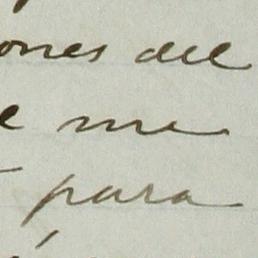 ones del
e me
para